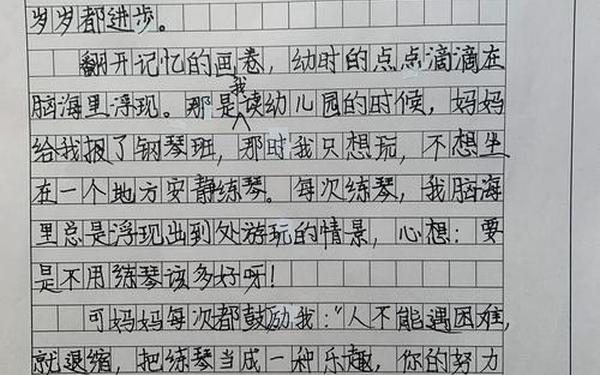 岁岁都进步。
翻开记忆的画卷，幼时的点点滴滴在
脑海里浮现。那是我读幼儿园的时候，妈妈
给我报了钢琴班，那时我只想玩，不想坐
在一个地方安静练琴。每次练琴，我脑海
里总是浮现出到处游玩的情景，心想：要
是不用练琴该多好呀！
可妈妈每次都鼓励我：“人不能遇困难，
就退缩，把练琴当成一种乐趣，你的努力